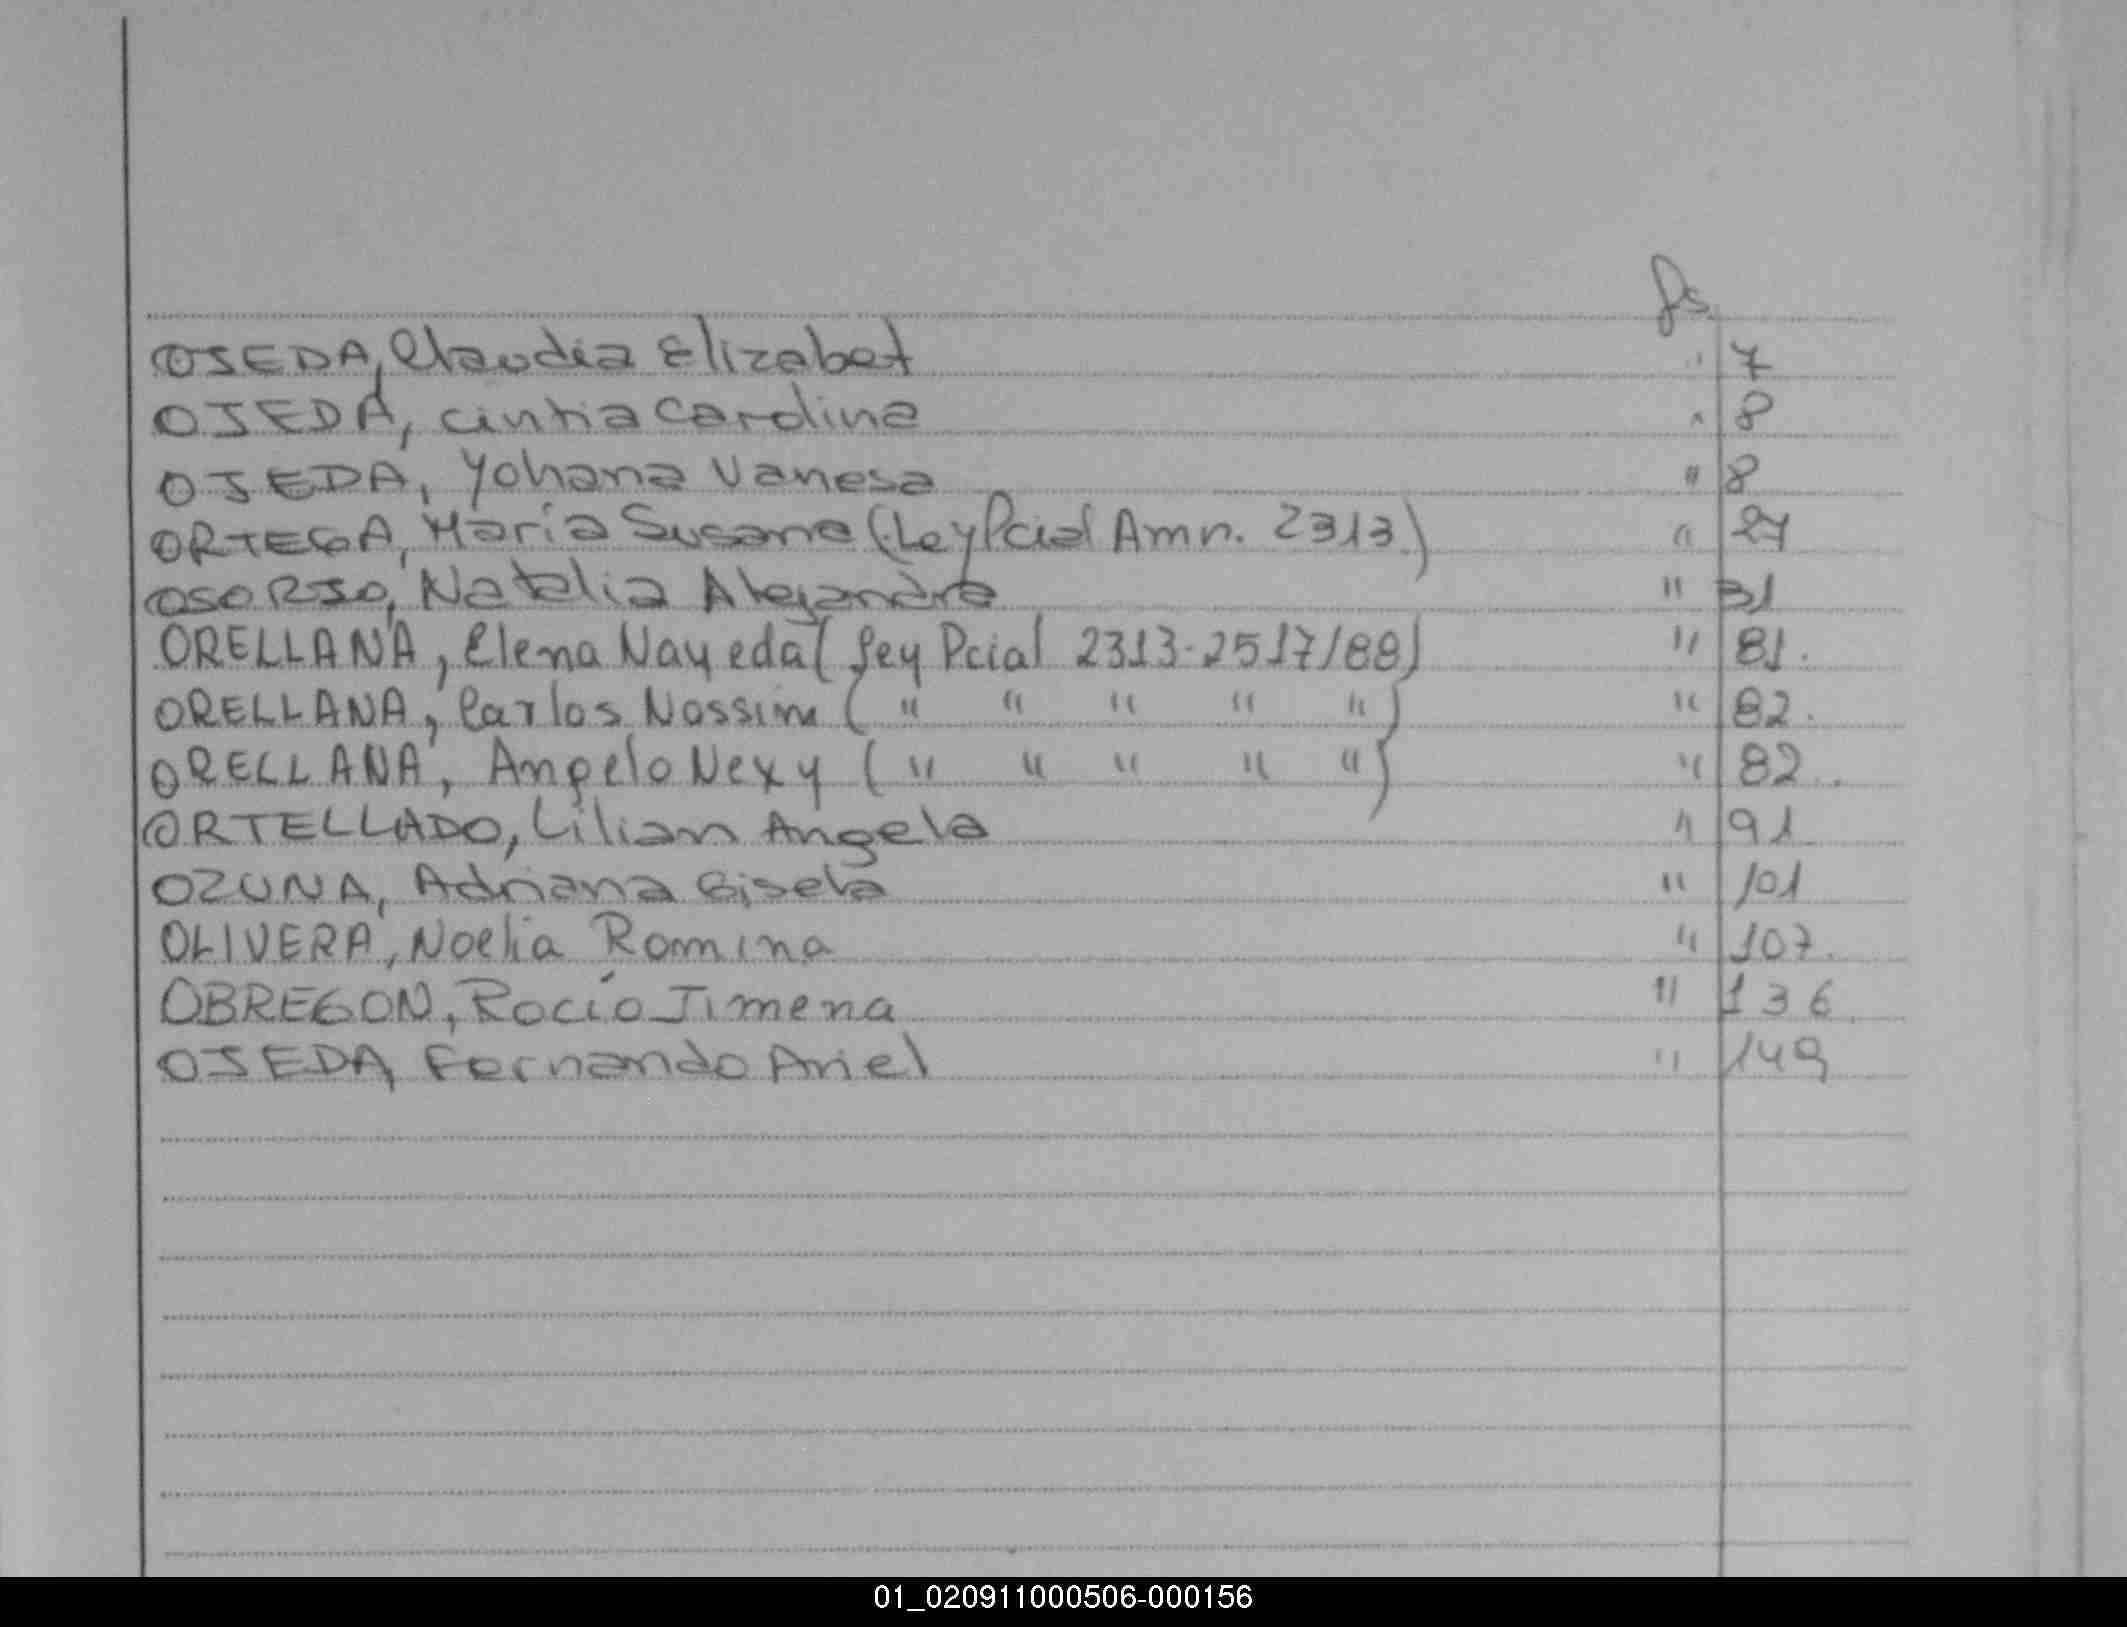 fs.
OJEDA, Claudia Elizabet " 7
OJEDA, Cintia Carolina " 8
OJEDA, Yohana Vanesa " 8
ORTEGA, María Susana (Ley Pcial Amn. 2313) " 27
OSORIO, Natalia Alejandra " 31
ORELLANA, Elena Nayeda (Ley Pcial 2313-2517/88) " 81.
ORELLANA, Carlos Nossim ( " " " " " ) " 82.
ORELLANA, Angelo Nexy ( " " " " " ) " 82.
ORTELLADO, Lilian Angela " 91
OZUNA, Adriana Gisela " 101
OLIVERA, Noelia Romina " 107.
OBREGON, Rocío Jimena " 136
OJEDA, Fernando Ariel " 149
01_020911000506-000156